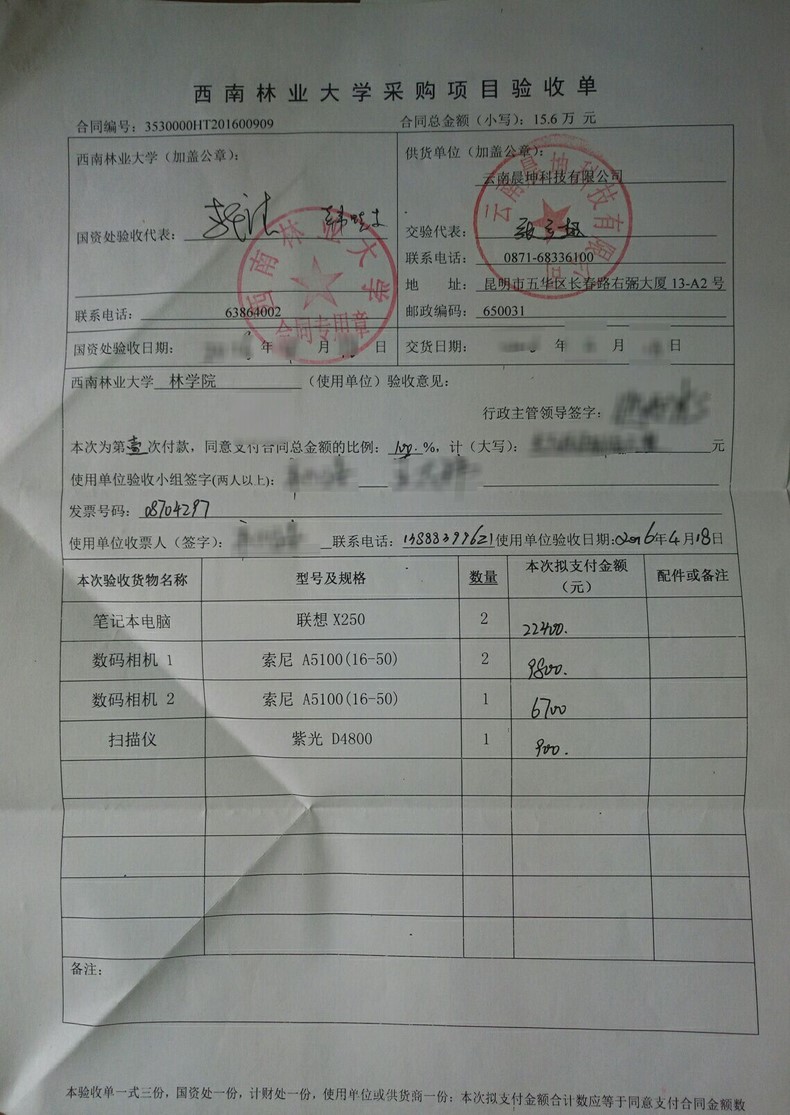 西南林业大学采购项目验收单
合同编号：3530000HT201600909 合同总金额（小写）：15.6 万 元
西南林业大学（加盖公章）：
供货单位（加盖公章）：
云南晨坤科技有限公司
国资处验收代表：
交验代表：
联系电话： 0871-68336100
地 址： 昆明市五华区长春路右弼大厦 13-A2 号
联系电话： 63864002
邮政编码： 650031
西南林业大学
合同专用章
云南晨坤科技有限公司
国资处验收日期： 年 月 日
交货日期： 年 月 日
西南林业大学 林学院 （使用单位）验收意见：
行政主管领导签字：
本次为第壹次付款，同意支付合同总金额的比例：100%，计（大写）： 元
使用单位验收小组签字(两人以上)：
发票号码：08704297
使用单位收票人（签字）： 联系电话：13888399621 使用单位验收日期：2016年4月18日
本次验收货物名称 型号及规格 数量 本次拟支付金额（元） 配件或备注
笔记本电脑 联想 X250 2 22400.
数码相机 1 索尼 A5100(16-50) 2 9800.
数码相机 2 索尼 A5100(16-50) 1 6700
扫描仪 紫光 D4800 1 900.
备注：
本验收单一式三份，国资处一份，计财处一份，使用单位或供货商一份：本次拟支付金额合计数应等于同意支付合同金额数